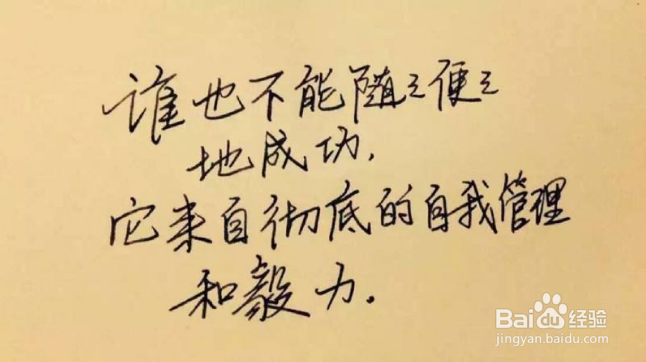 谁也不能随㇀便㇀
地成功.
它来自彻底的自我管理
和毅力.
Baidu经验
jingyan.baidu.com